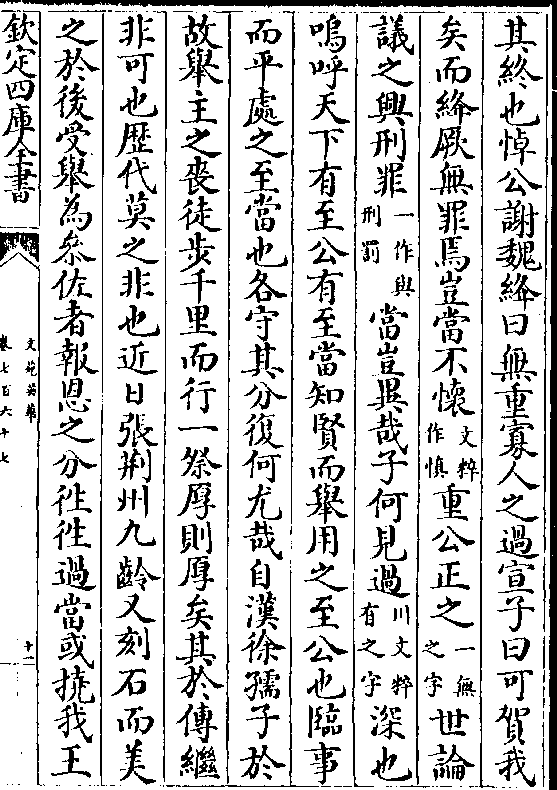 其終也悼公謝魏絳曰無重寡人之過宣子曰可賀我
矣而絳厥無罪焉豈當不懷文粹作慎重公正之一無之字世論
議之興刑罪一作與刑罰當豈異哉子何見過川文粹有之字深也
嗚呼天下有至公有至當知賢而舉用之至公也臨事
而平處之至當也各守其分復何尤哉自漢徐孺子於
故舉主之喪徒步千里而行一祭厚則厚矣其於傳繼
非可也歷代莫之非也近日張荆州九齡又刻石而美
之於後受舉為叅佐者報恩之分徃徃過當或撓我王
欽定四庫全書
文苑英華
卷七百六十七
十一